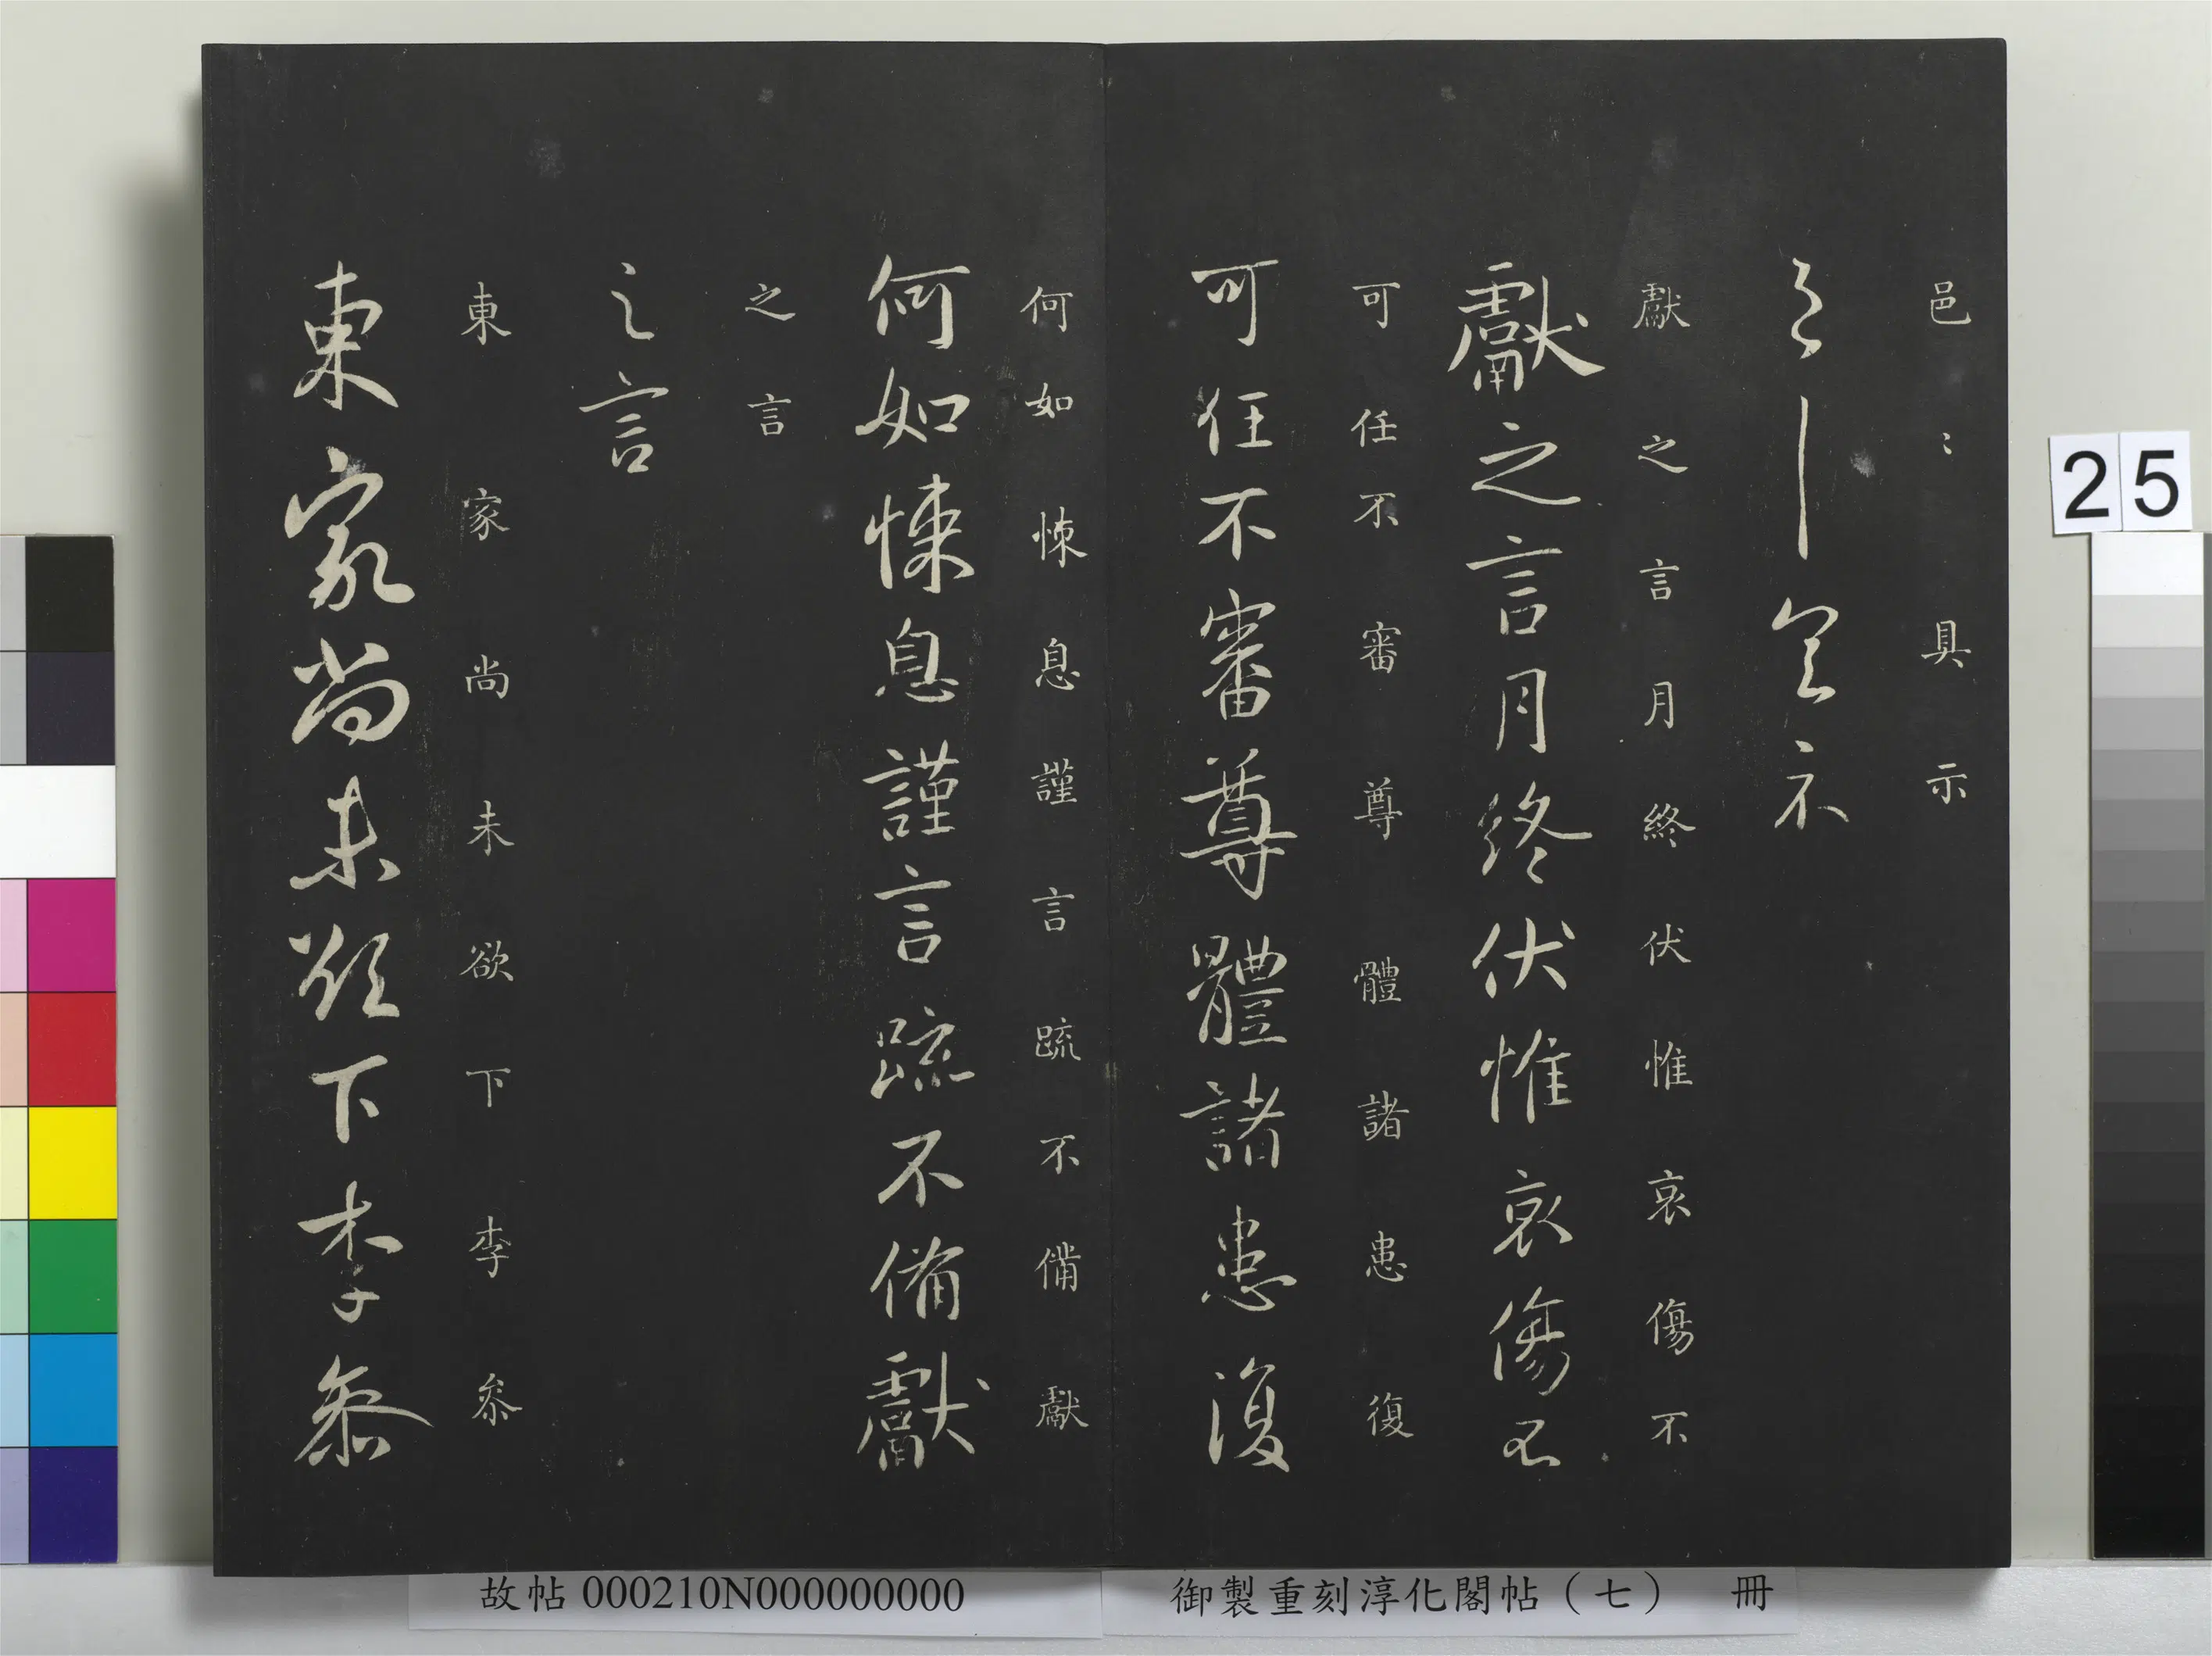 邑〻具示
邑〻具示
獻之言月終伏惟哀傷不
獻之言月終伏惟哀傷不
可任不審尊體諸患復
可任不審尊體諸患復
何如悚息謹言疏不備獻
何如悚息謹言疏不備獻
之言
之言
東家尚未欲下李參
東家尚未欲下李參
25
故帖000210N000000000
御製重刻淳化閣帖（七） 冊